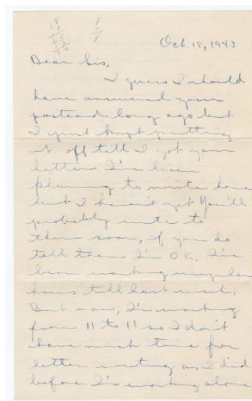 Oct 18, 1943
Dear Sis,
I guess I should
have answered your
postcard long ago but
I just kept putting
it off till I got your
letter. I've been
planning to write home
but I haven't yet. You'll
probably write to
them soon, if you do
tell them I'm OK. I've
been working
hours till last week.
But now, I'm working
from 11 to 11 so I don't
have much time for
letter writing as I did
before. I'm working alone